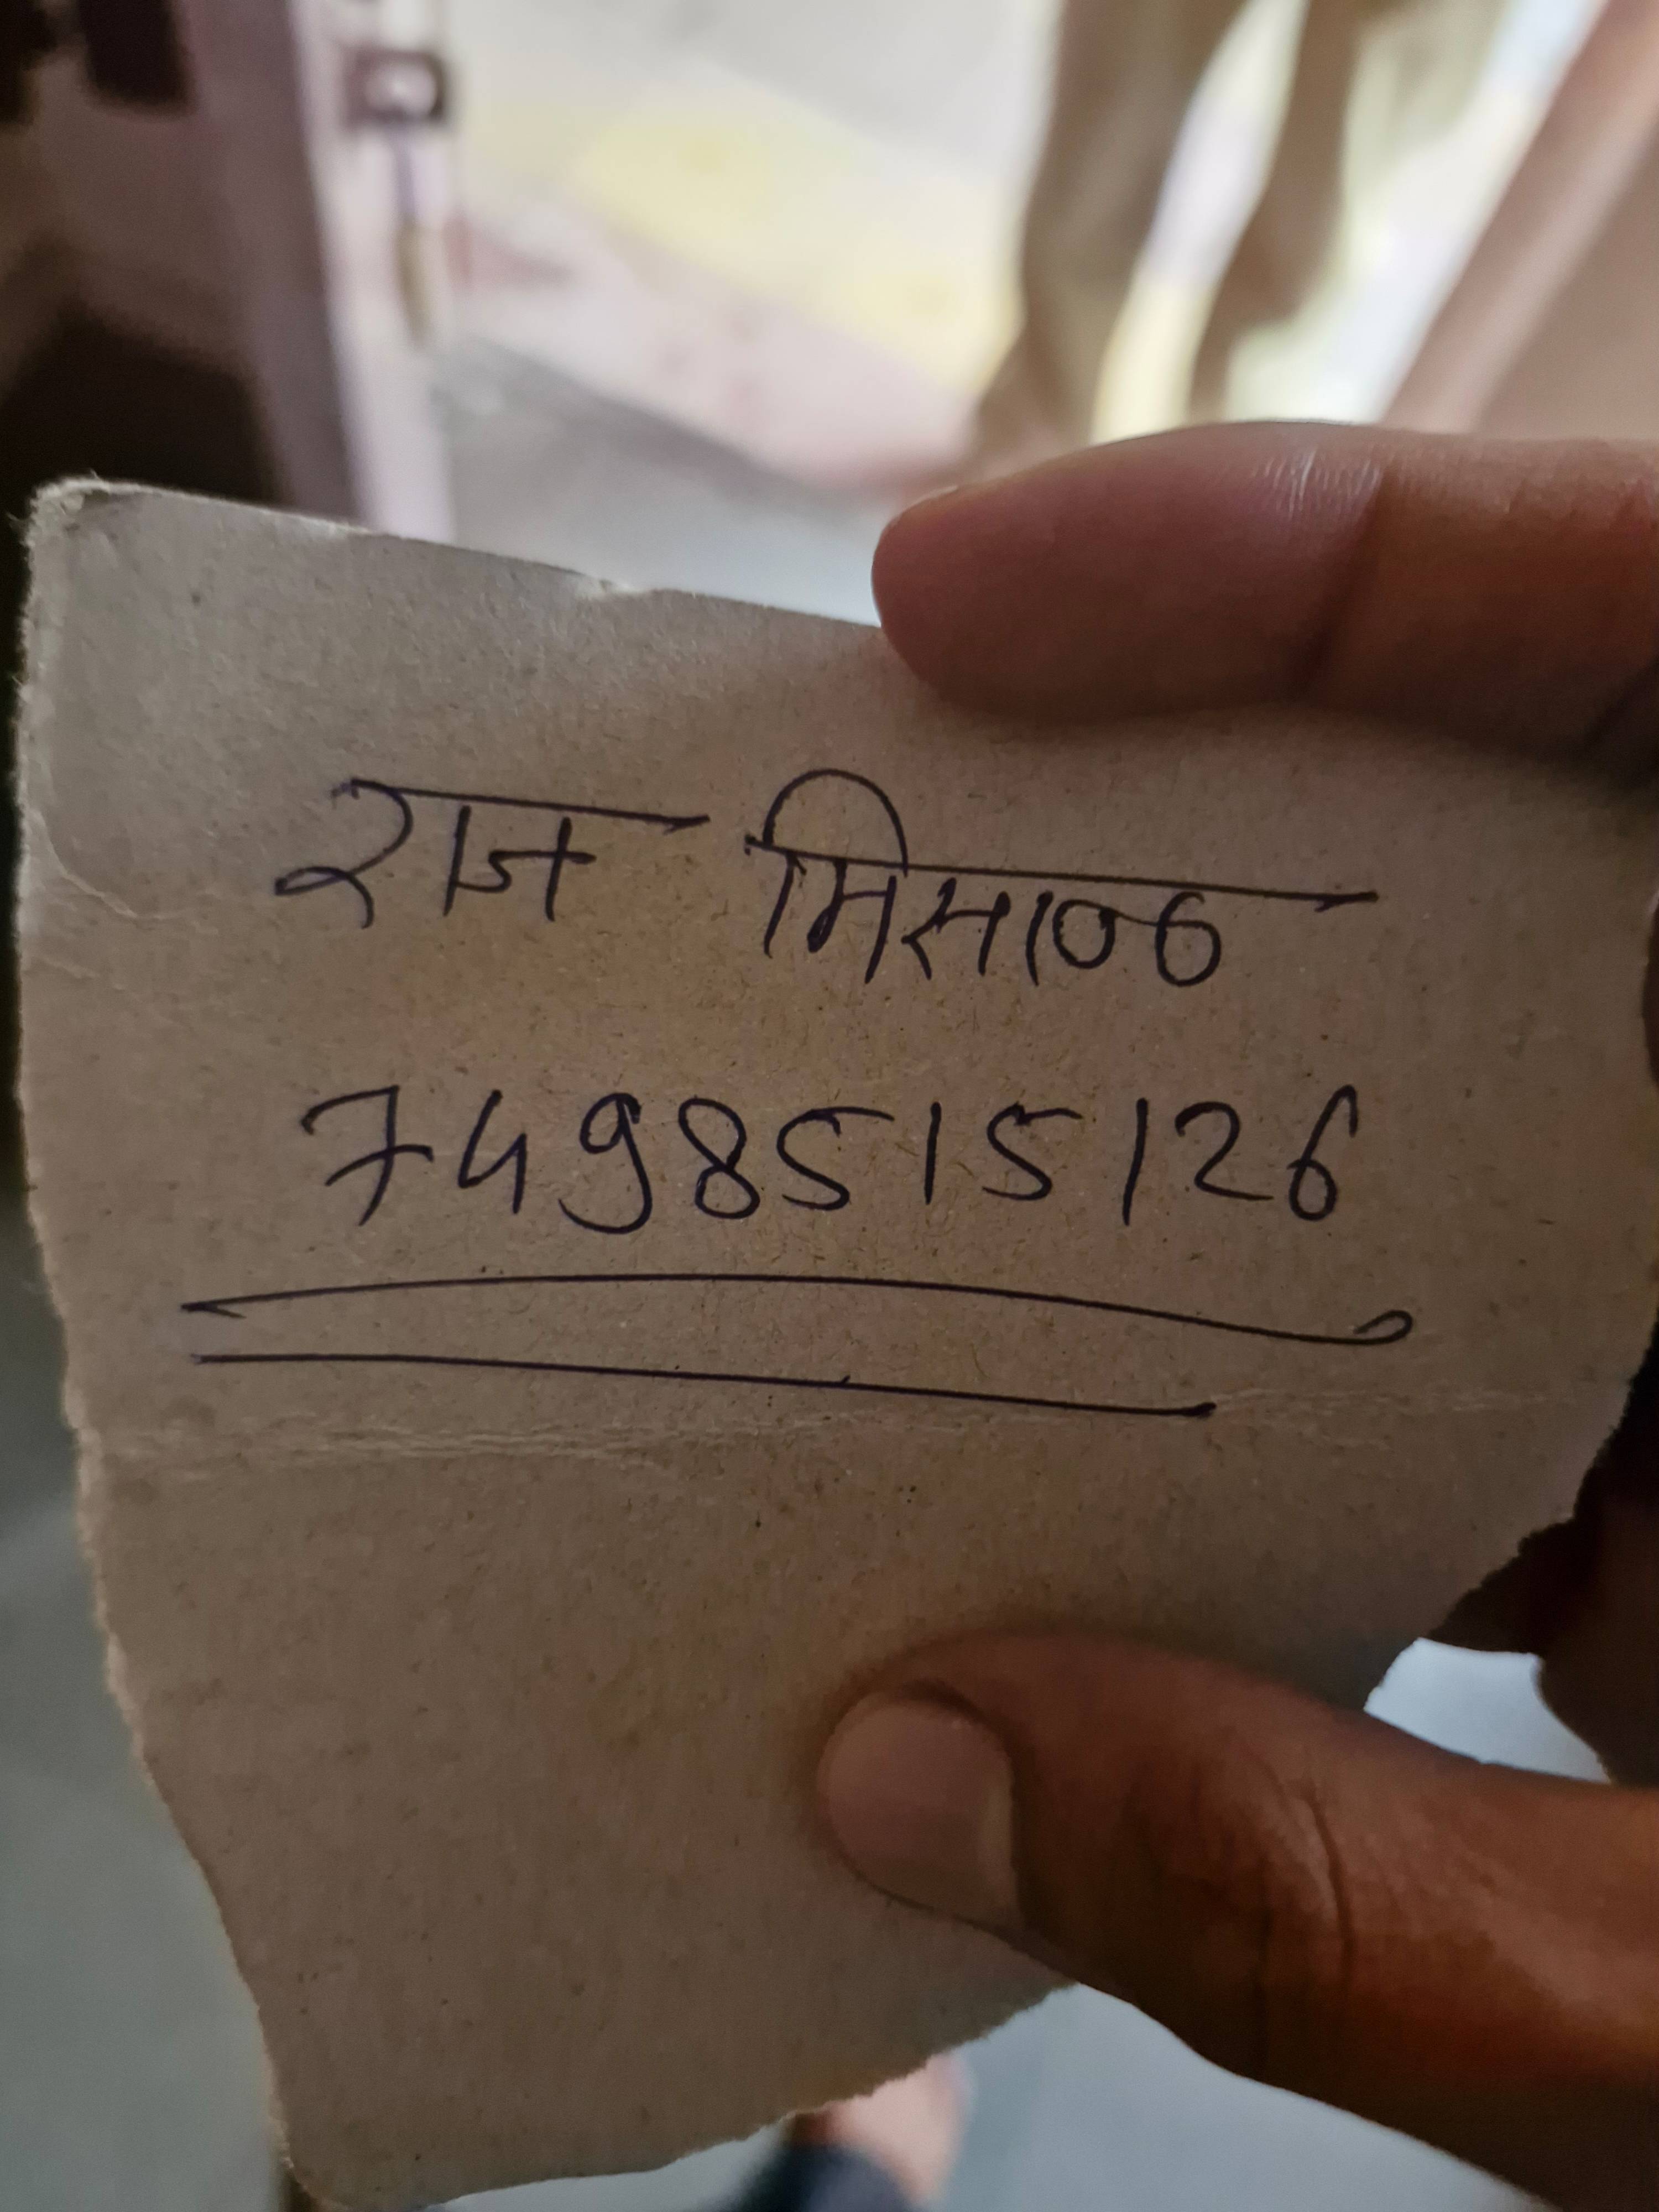 राज मिसाळ
7498515126